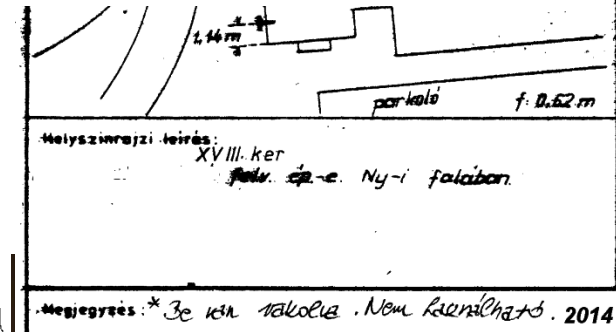 1,14 m
parkoló f: 0.62 m
Helyszínrajzi leírás:
XVIII. ker
felv. ép-e. Ny-i falában.
Megjegyzés: * Be van vakolva. Nem használható. 2014